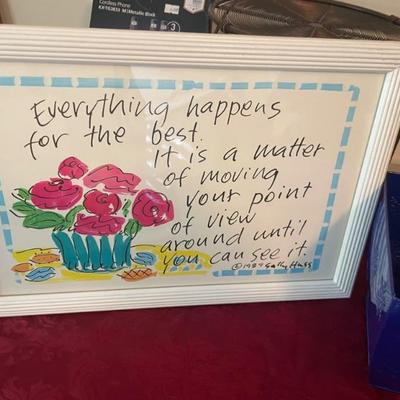 Cordless Phone
Everything happens
for the best.
It is a matter
of moving
your point
of view
around until
you can see it.
© 1989 Sally Huss